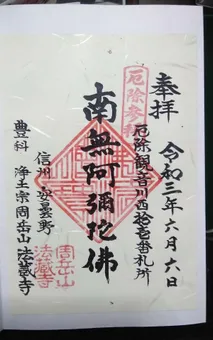 奉拝
令和三年六月六日
厄除参拝
厄除観音川西拾壱番札所
南無阿彌陀佛
信州安曇野
豊科 浄土宗周岳山 法蔵寺
周岳山
法蔵寺